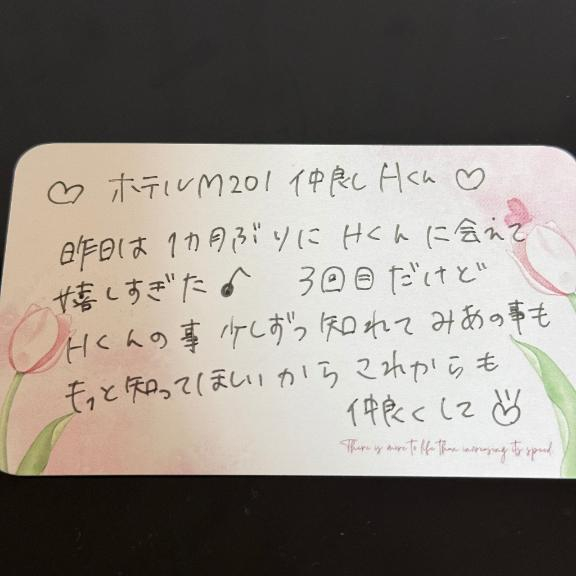 ♡ ホテルM201 仲良しHくん ♡
昨日は1カ月ぶりにHくんに会えて
嬉しすぎた♪ 3回目だけど
Hくんの事少しずつ知れてみあの事も
もっと知ってほしいからこれからも
仲良くして
There is more to life than increasing its speed.